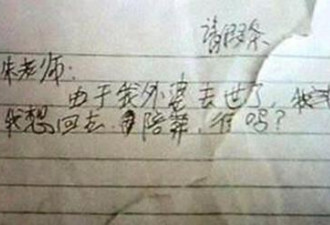 请假条
朱老师:
由于我外婆去世了,我
我想回去陪葬,行吗?